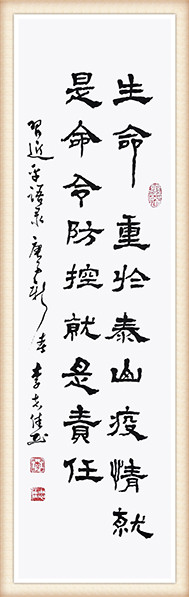 生命重於泰山疫情就
是命令防控就是責任
習近平語录庚子新春李志佳書